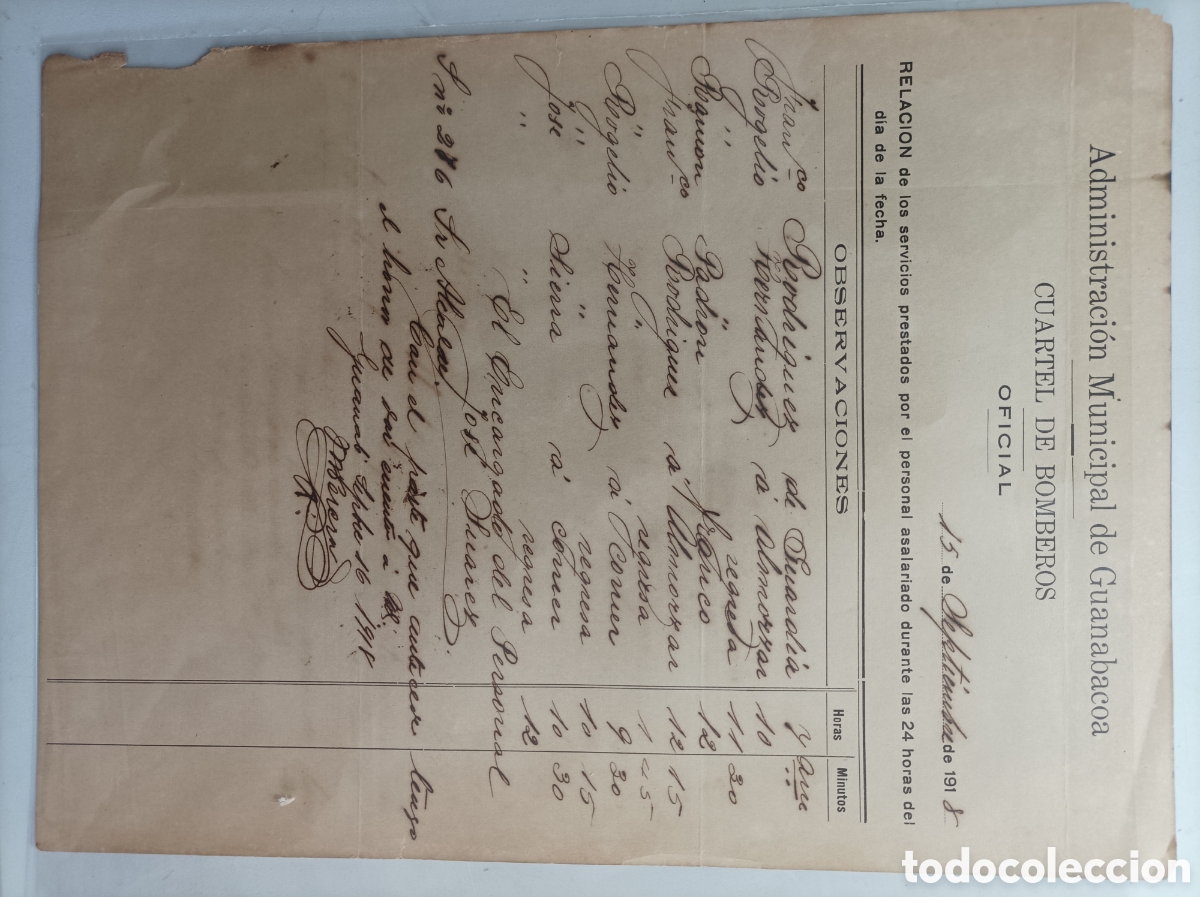 Administración Municipal de Guanabacoa
CUARTEL DE BOMBEROS
OFICIAL
15 de Septiembre de 1918
RELACION de los servicios prestados por el personal asalariado durante las 24 horas del
día de la fecha.
OBSERVACIONES Horas Minutos
Franco Rodriguez de Guardia 7 am
Rogelio Hernandez á almorzar 10 "
" " regresa 11 20
Ramon Padron 12
Franco Rodriguez a Almorzar 12 15
" " regresa 1 45
Rogelio Hernandez á comer 9 20
" " regresa 10 15
José Sierra á comer 10 30
" " regresa 12
El Encargado del Personal
José Suarez
Sr Alcalde
Con el parte que antecede tengo
el honor de dar cuenta á
Guanab Sepbe 16 1918
todocoleccion